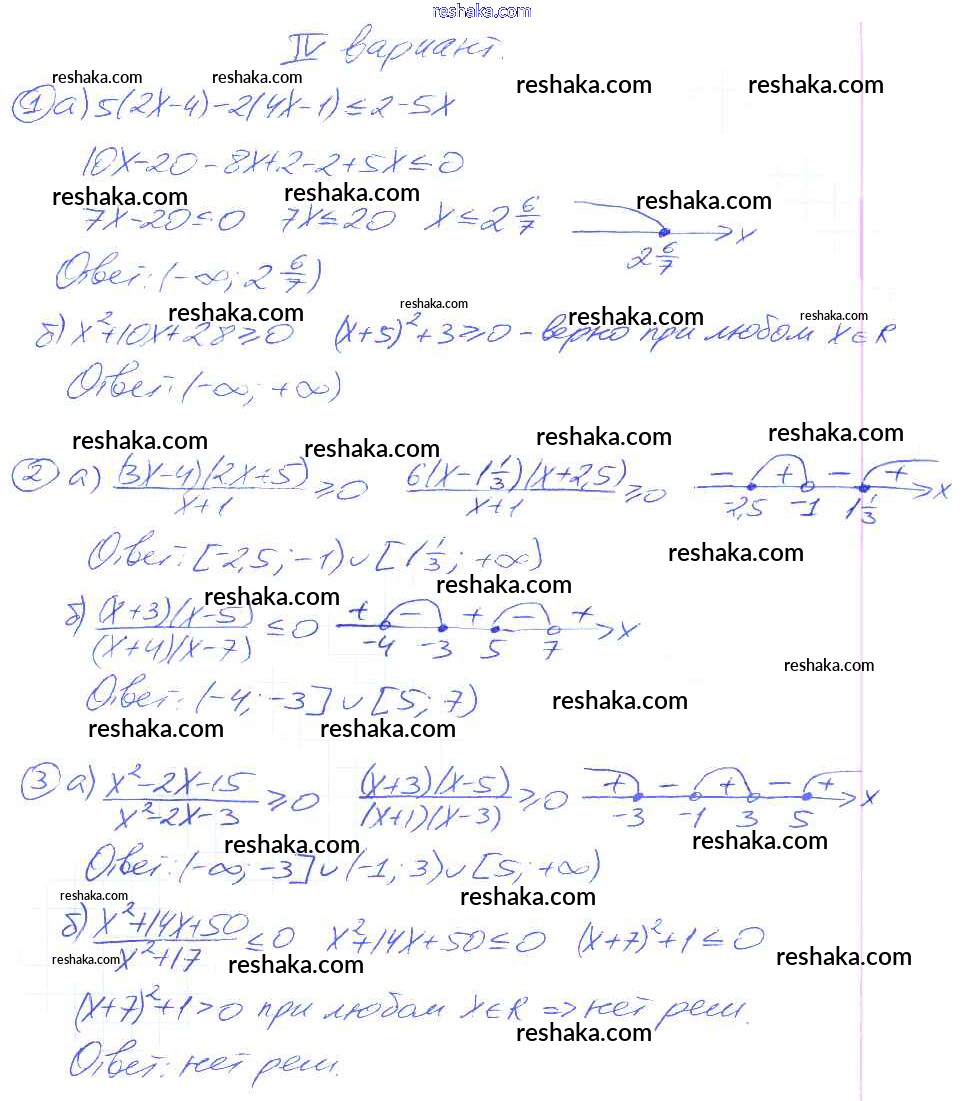 reshaka.com
IV вариант.
reshaka.com reshaka.com reshaka.com reshaka.com
① а) 5(2x-4)-2(4x-1)≤2-5x
10x-20-8x+2-2+5x≤0
reshaka.com reshaka.com reshaka.com
7x-20≤0 7x≤20 x≤2 6/7 2 6/7 x
Ответ: (-∞; 2 6/7)
reshaka.com reshaka.com reshaka.com reshaka.com
б) x²+10x+28≥0 (x+5)²+3≥0 - верно при любом x∈R
Ответ: (-∞; +∞)
reshaka.com reshaka.com reshaka.com reshaka.com
② а) (3x-4)(2x+5)/x+1 ≥0 6(x-1 1/3)(x+2,5)/x+1 ≥0 - + - + -2,5 -1 1 1/3 x
Ответ: [-2,5; -1)∪[1 1/3; +∞)
reshaka.com reshaka.com reshaka.com
б) (x+3)(x-5)/(x+4)(x-7) ≤0 + - + - + -4 -3 5 7 x
reshaka.com
Ответ: (-4; -3]∪[5; 7)
reshaka.com reshaka.com reshaka.com
③ а) x²-2x-15/x²-2x-3 ≥0 (x+3)(x-5)/(x+1)(x-3) ≥0 + - + - + -3 -1 3 5 x
reshaka.com reshaka.com
Ответ: (-∞; -3]∪(-1; 3)∪[5; +∞)
reshaka.com reshaka.com
б) x²+14x+50/x²+17 ≤0 x²+14x+50≤0 (x+7)²+1≤0
reshaka.com reshaka.com reshaka.com
(x+7)²+1>0 при любом x∈R => нет реш.
reshaka.com
Ответ: нет реш.